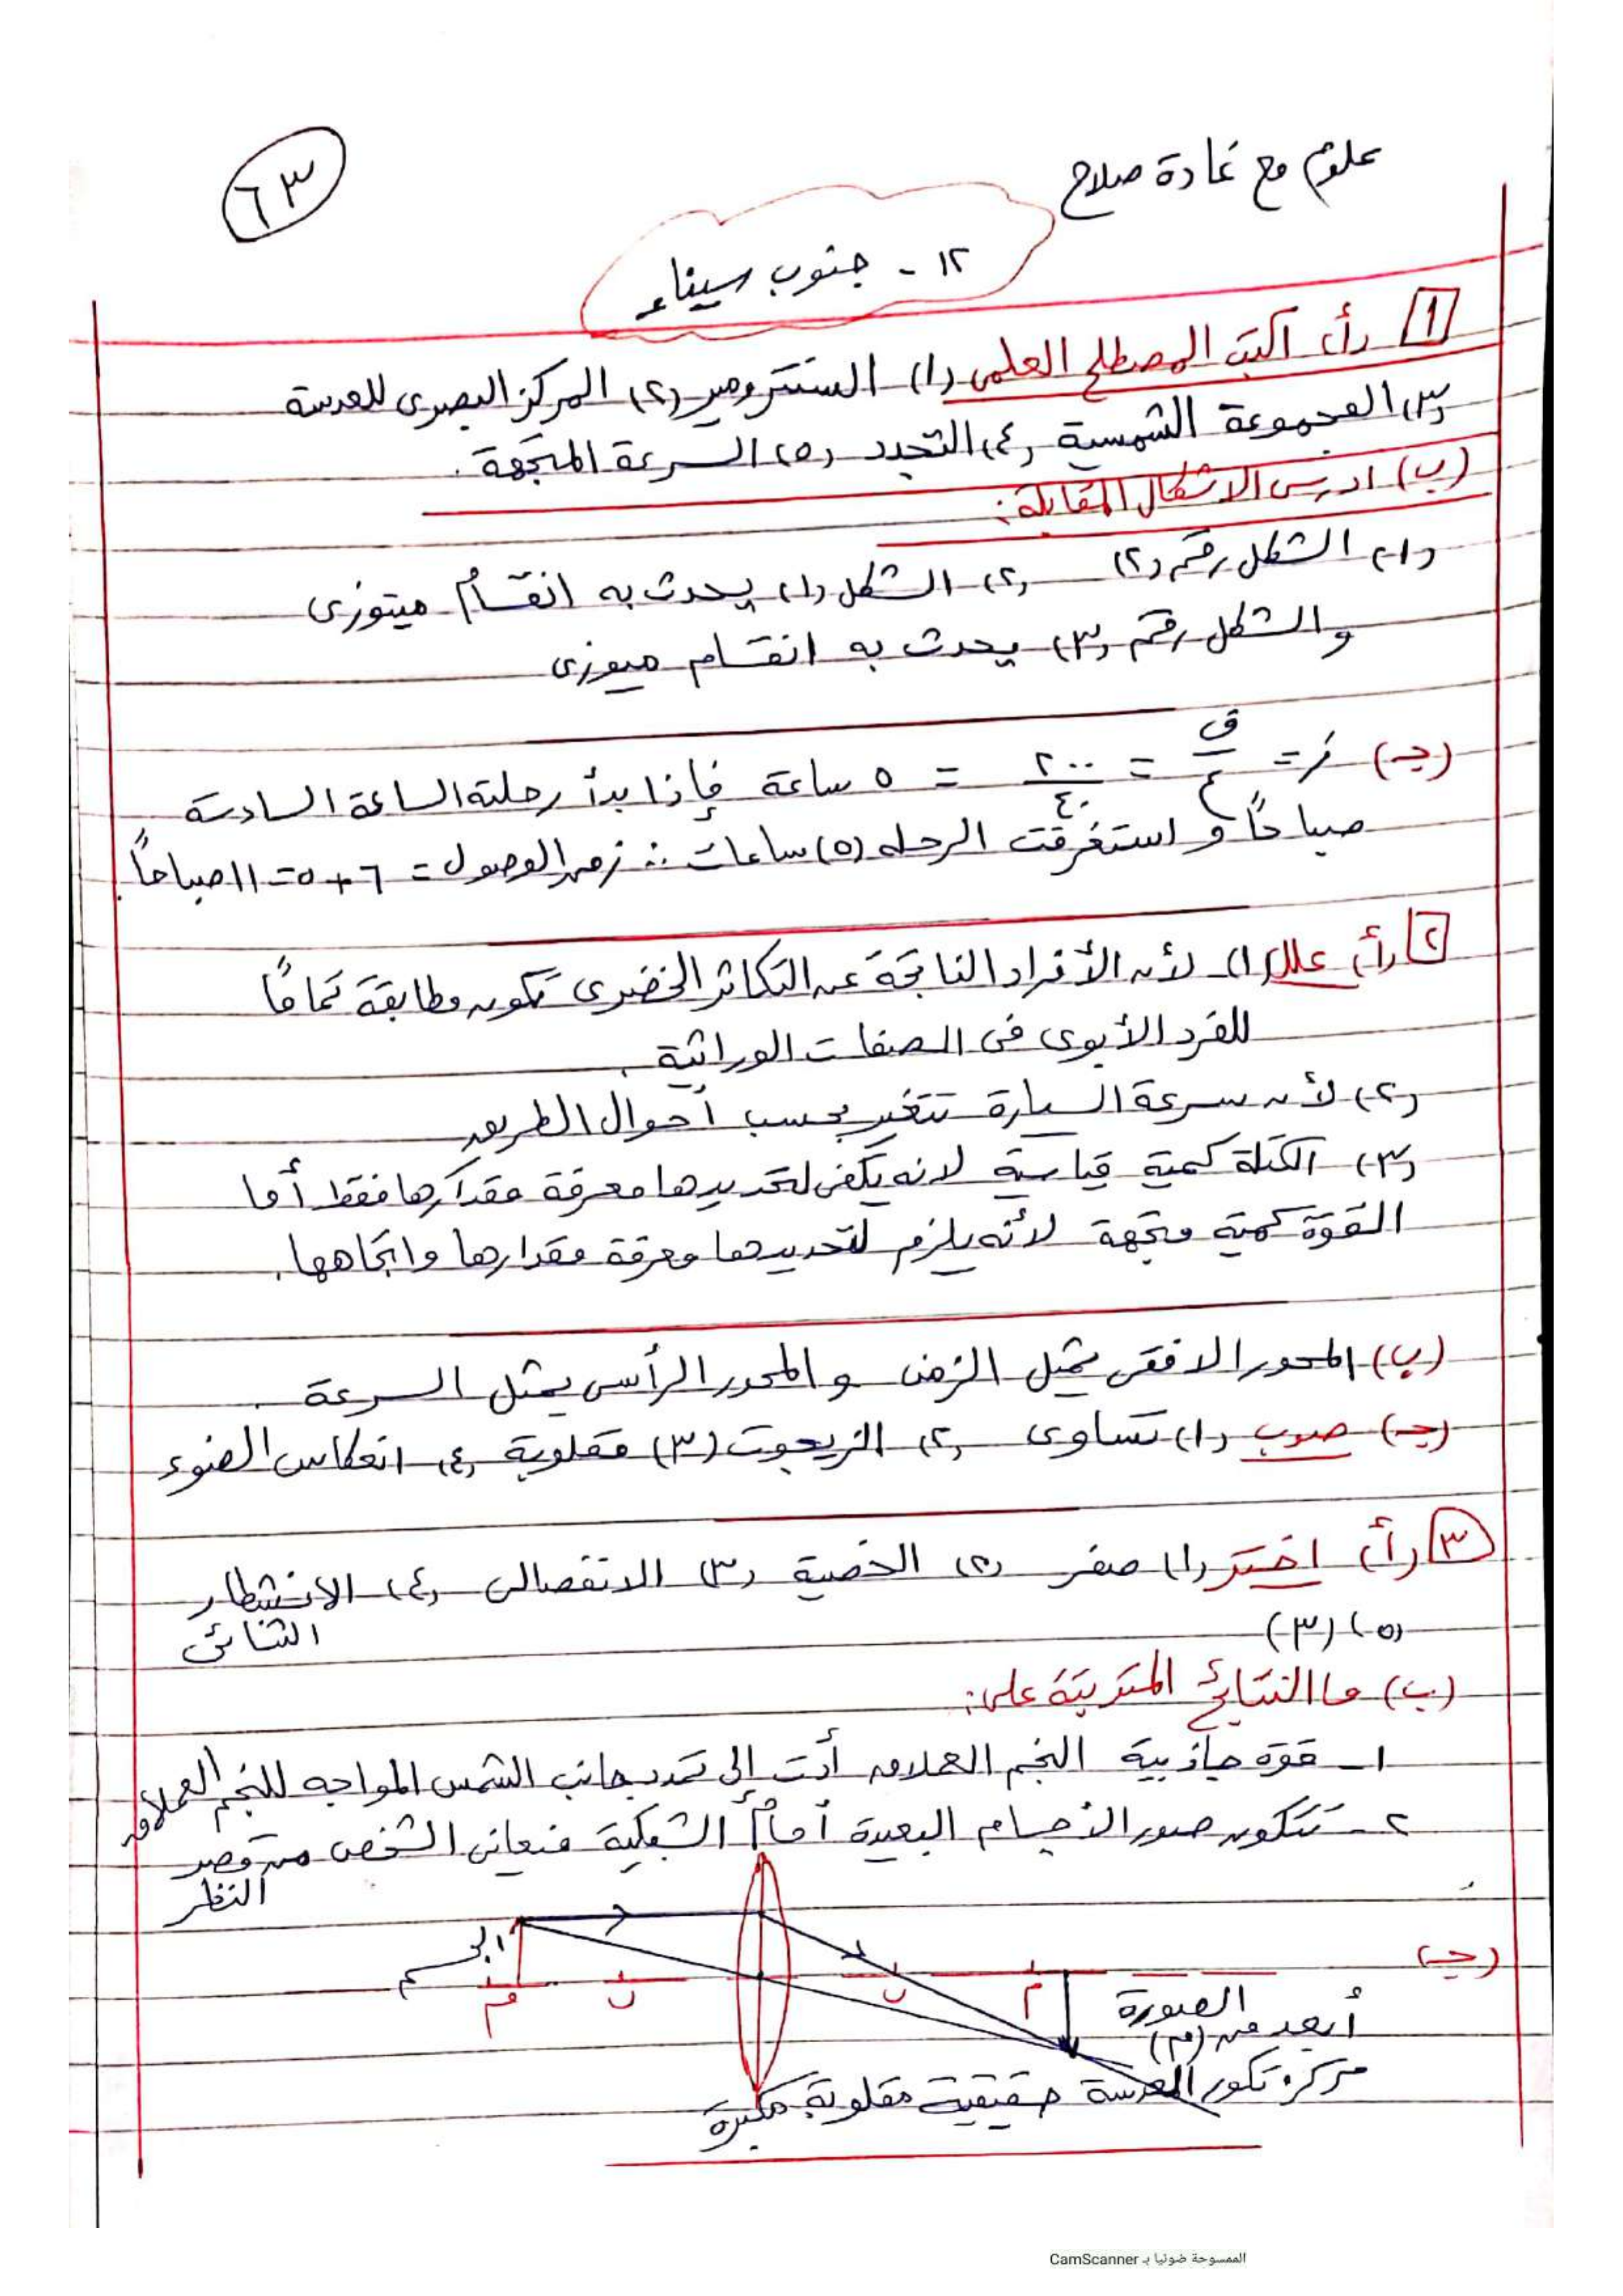 علوم مع غادة صلاح
٦٣
١٢ - جنوب سيناء
١ (أ) اكتب المصطلح العلمى (١) السنترومير (٢) المركز البصرى للعدسة
(٣) المجموعة الشمسية (٤) التجدد (٥) السرعة المتجهة.
(ب) ادرس الاشكال المقابلة:
(١) الشكل رقم (٢) (٢) الشكل (١) يحدث به انقسام ميتوزى
والشكل رقم (٣) يحدث به انقسام ميوزى
(جـ) ز = ف/ع = ٢٠٠/٤٠ = ٥ ساعة فإذا بدأ رحلته الساعة السادسة
صباحاً و استغرقت الرحله (٥) ساعات ∴ زمن الوصول = ٦ + ٥ = ١١ صباحاً.
٢ (أ) علل (١) لأن الأفراد الناتجة عن التكاثر الخضرى تكون مطابقة تماماً
للفرد الأبوى فى الصفات الوراثية.
(٢) لأن سرعة السيارة تتغير بحسب أحوال الطريق
(٣) الكتلة كمية قياسية لانه يكفى لتحديدها معرفة مقدارها فقط أما
القوة كمية متجهة لأنه يلزم لتحديدها معرفة مقدارها واتجاهها.
(ب) المحور الافقى يمثل الزمن والمحور الرأسى يمثل السرعة.
(جـ) صوب (١) تساوى (٢) الزيجوت (٣) مقلوبة (٤) انعكاس الضوء
٣ (أ) اختر (١) صفر (٢) الخصية (٣) الانفصالى (٤) الانشطار
الثنائى
(٥) (٣)
(ب) ما النتائج المترتبة على:
١ - قوة جاذبية النجم العملاق أدت إلى تمدد جانب الشمس المواجه للنجم العملاق
٢ - تتكون صور الأجسام البعيدة أمام الشبكية فيعانى الشخص من قصر
النظر
(جـ)
الجسم
م ن ن م
الصورة
أبعد من (م)
مركز تكور العدسة حقيقية مقلوبة مكبرة
الممسوحة ضوئيا بـ CamScanner